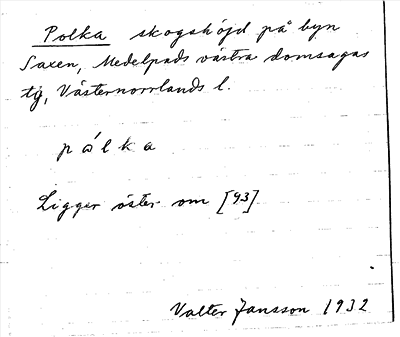 Polka skogshöjd på byn
Saxen, Medelpads västra domsagas
tg, Västernorrlands l.
pω̊́lka
Ligger öster om [93]
Valter Jansson 1932